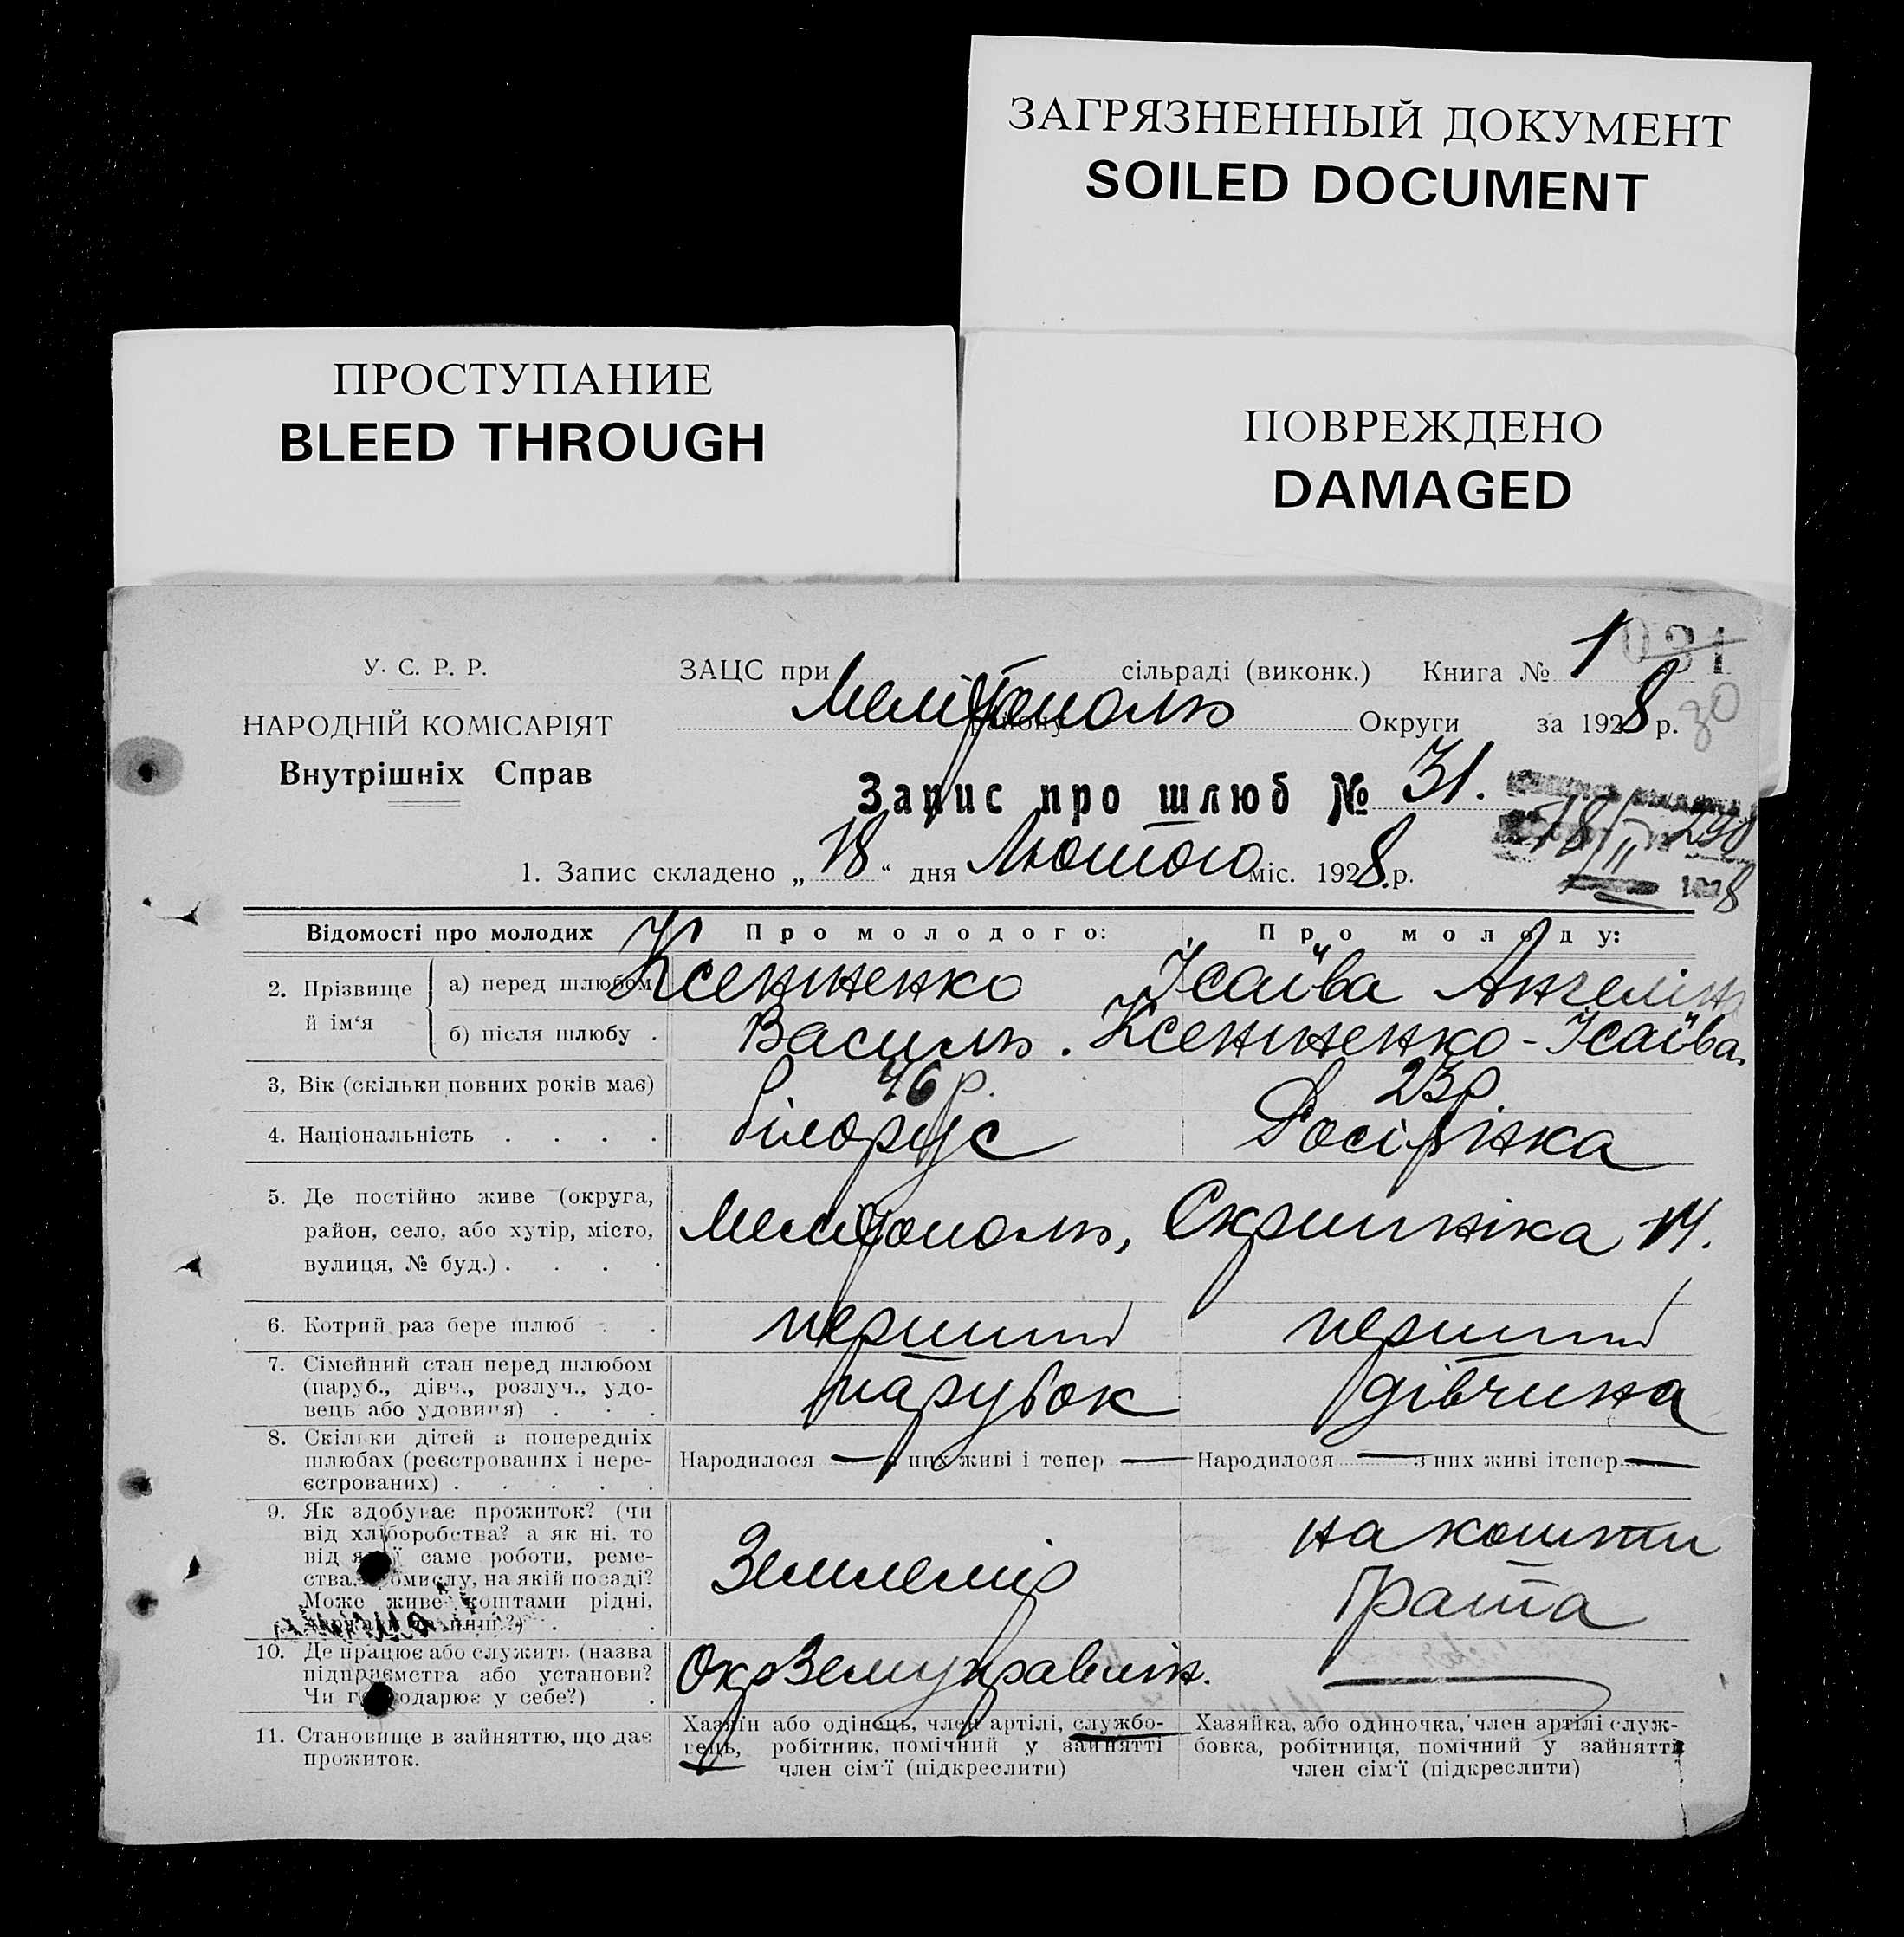 ЗАГРЯЗНЕННЫЙ ДОКУМЕНТ
SOILED DOCUMENT
ПРОСТУПАНИЕ
BLEED THROUGH
ПОВРЕЖДЕНО
DAMAGED
031
30
У. С. Р. Р.
НАРОДНІЙ КОМІСАРІЯТ
Внутрішніх Справ
ЗАЦС при сільраді (виконк.) Книга № 1
Мелітополь району Округи за 1928 р.
Запис про шлюб № 31.
1. Запис складено „18“ дня Лютого міс. 1928 р.
18/II 1928
Відомості про молодих Про молодого: Про молоду:
2. Прізвище й ім‘я а) перед шлюбом Ксенженко Ісаїва Ангеліна
б) після шлюбу . Василь. Ксенженко-Ісаїва
3, Вік (скільки повних років має) 46 р. 23 р
4. Національність . . . . білорус Росіянка
5. Де постійно живе (округа,
район, село, або хутір, місто,
вулиця, № буд.) . . . .
Мелітополь, Скрипніка 14.
6. Котрий раз бере шлюб . . перший перший
7. Сімейний стан перед шлюбом
(паруб., дівч., розлуч., удо-
вець або удовиця) . . .
парубок дівчина
8. Скільки дітей з попередніх
шлюбах (реєстрованих і нере-
єстрованих) . . . . .
Народилося — них живі і тепер — Народилося — з них живі ітепер —
9. Як здобуває прожиток? (чи
від хліборобства? а як ні, то
від якої саме роботи, реме-
ства, промислу, на якій посаді?
Може живе коштами рідні,
Землемір
на кошти
брата
10. Де працює або служить (назва
підприємства або установи?
Чи господарює у себе?) .
ОкрЗемуправлін. —
11. Становище в зайняттю, що дає
прожиток.
Хазяїн або одінець, член артілі, службо-
вець, робітник, помічний у зайнятті
член сім‘ї (підкреслити)
Хазяйка, або одиночка, член артілі служ-
бовка, робітниця, помічний у зайнятті
член сім‘ї (підкреслити)